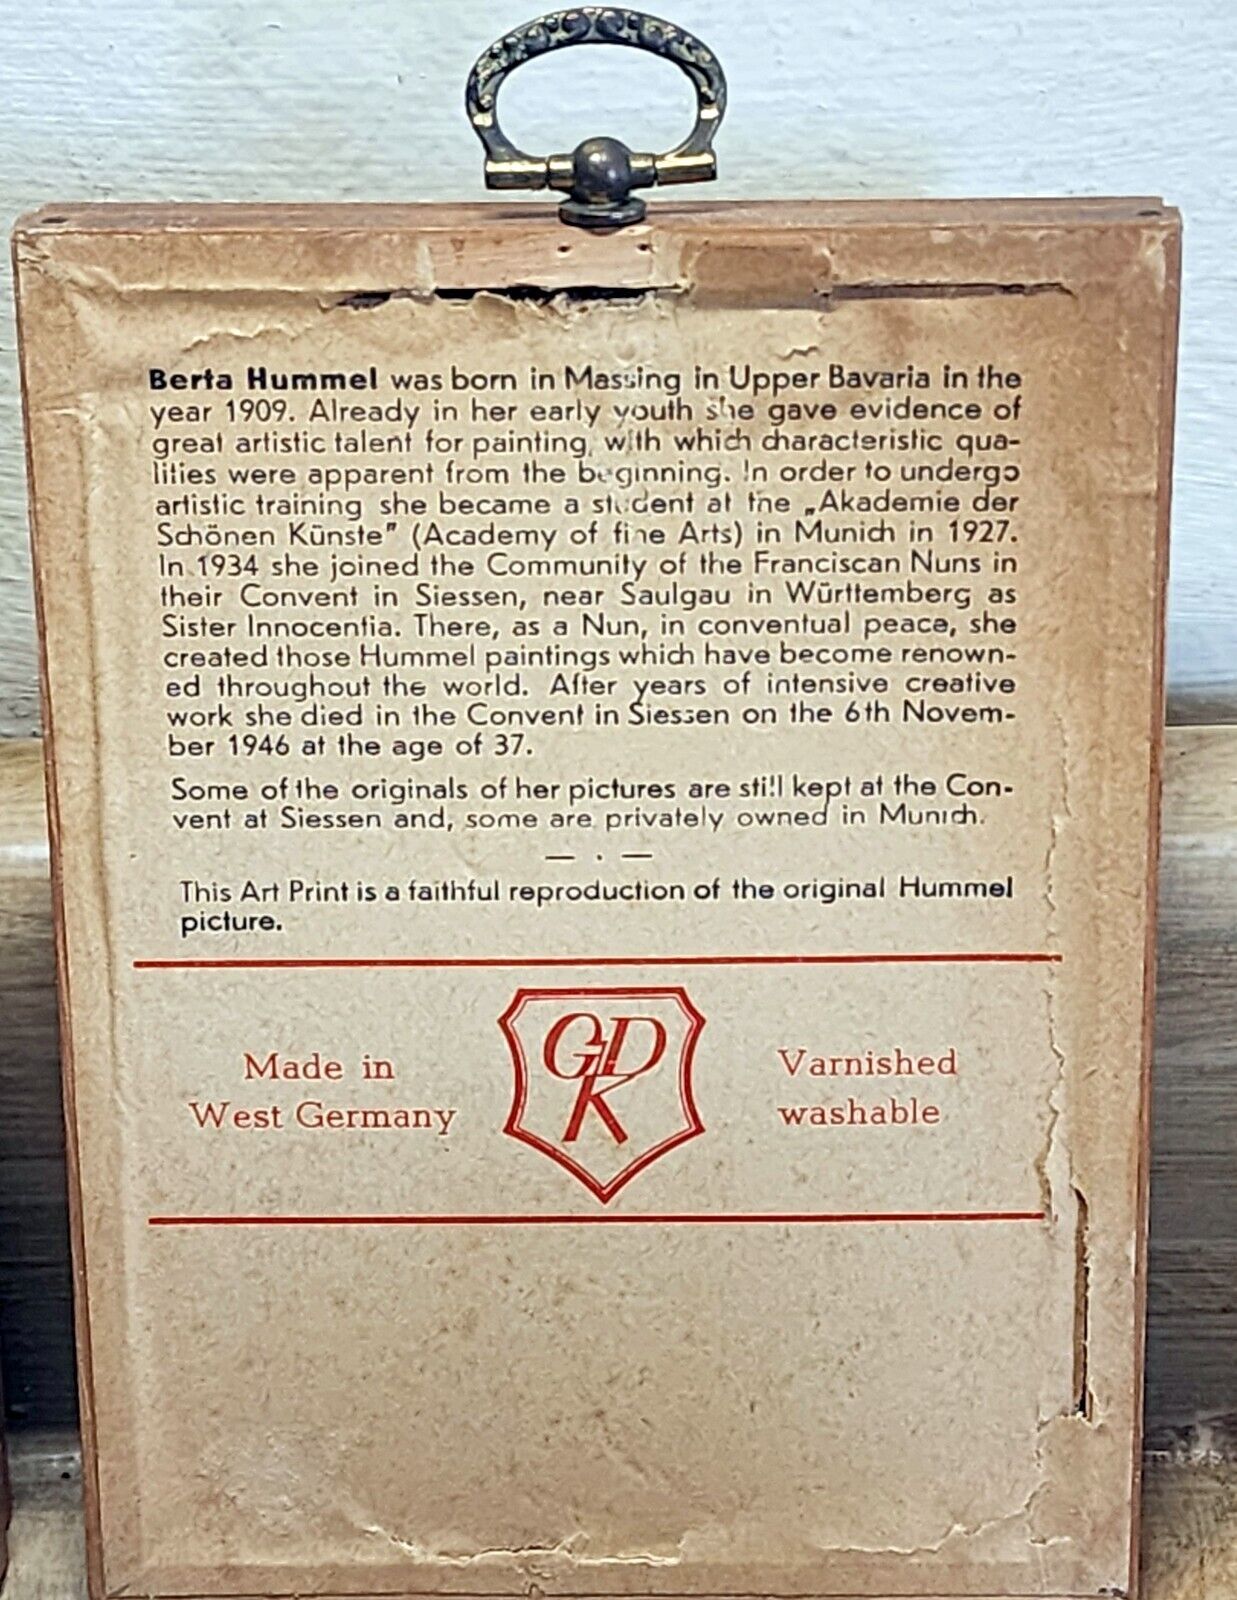 Berta Hummel was born in Massing in Upper Bavaria in the
year 1909. Already in her early youth she gave evidence of
great artistic talent for painting, with which characteristic qua-
lities were apparent from the beginning. In order to undergo
artistic training she became a student at the „Akademie der
Schönen Künste" (Academy of fine Arts) in Munich in 1927.
In 1934 she joined the Community of the Franciscan Nuns in
their Convent in Siessen, near Saulgau in Württemberg as
Sister Innocentia. There, as a Nun, in conventual peace, she
created those Hummel paintings which have become renown-
ed throughout the world. After years of intensive creative
work she died in the Convent in Siessen on the 6th Novem-
ber 1946 at the age of 37.
Some of the originals of her pictures are still kept at the Con-
vent at Siessen and, some are privately owned in Munich.
— . —
This Art Print is a faithful reproduction of the original Hummel
picture.
Made in
West Germany
GDK
Varnished
washable